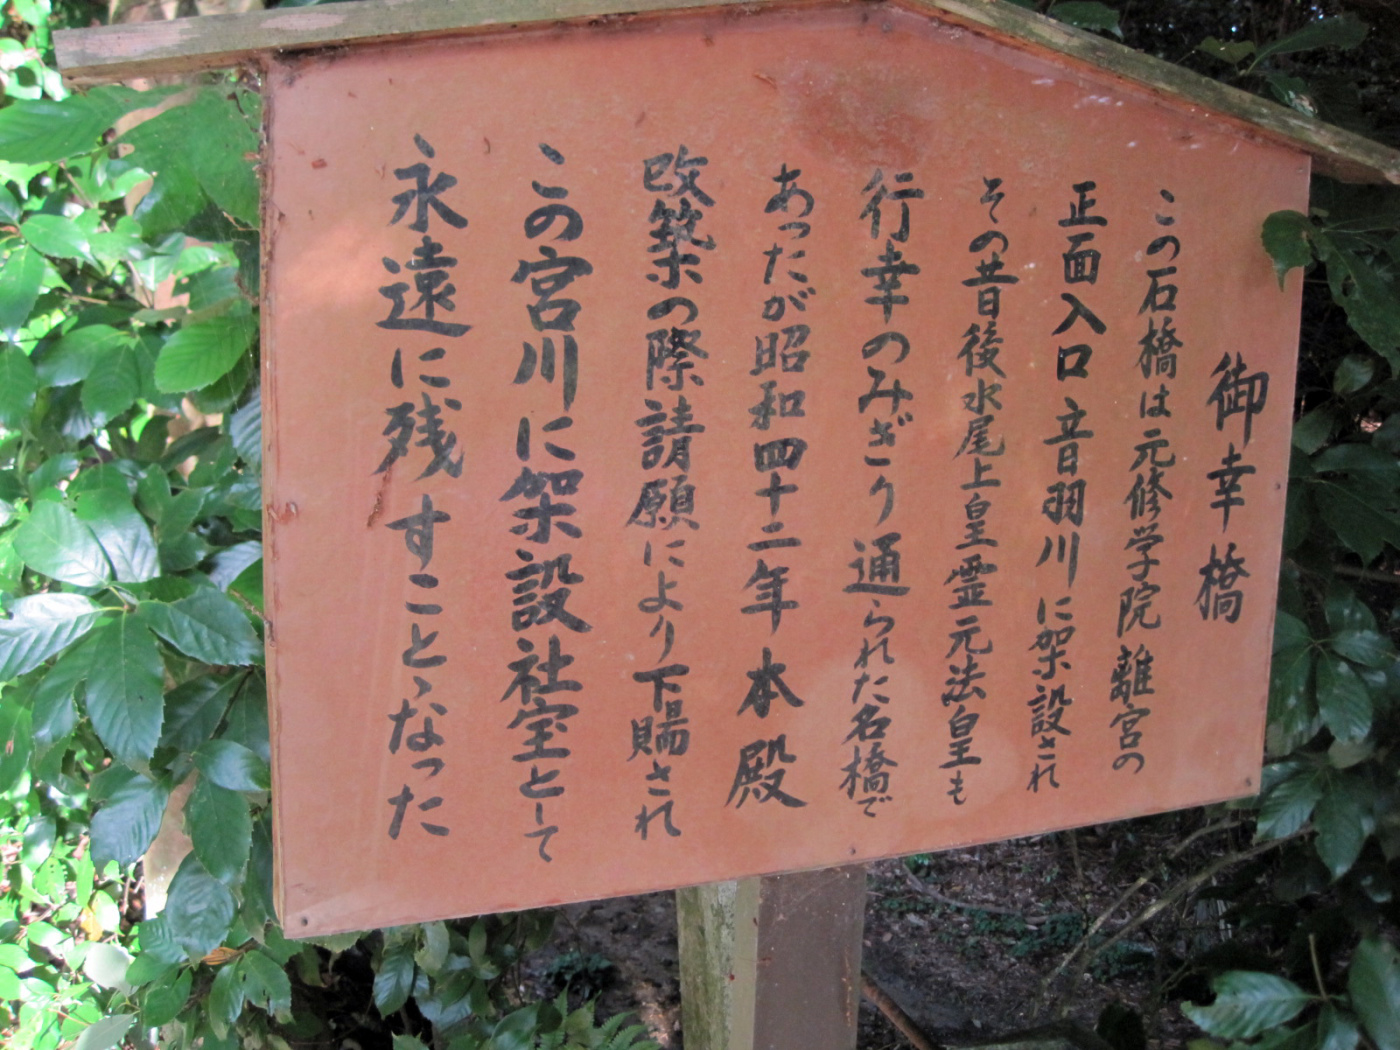 御幸橋
この石橋は元修学院離宮の
正面入口音羽川に架設され
その昔後水尾上皇霊元法皇も
行幸のみぎり通られた名橋で
あったが昭和四十二年本殿
改築の際請願により下賜され
この宮川に架設社宝として
永遠に残すことゝなった